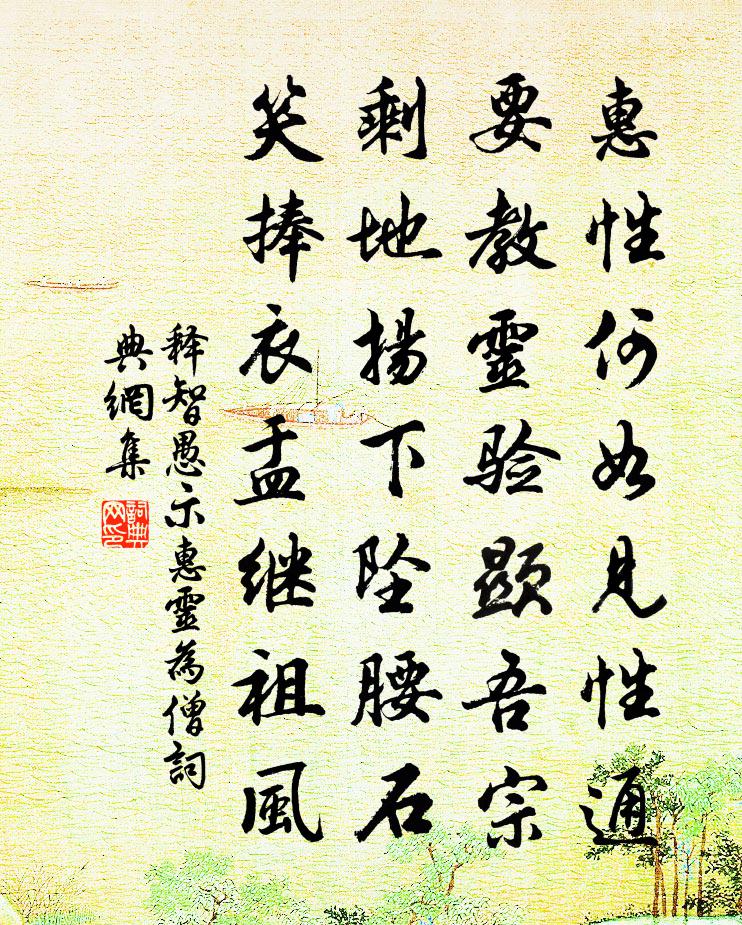 惠性何如見性通
要教靈验顯吾宗
剩地揚下坠腰石
笑捧衣盂继祖風
释智愚示惠靈為僧詞
典網集
詞典
网印